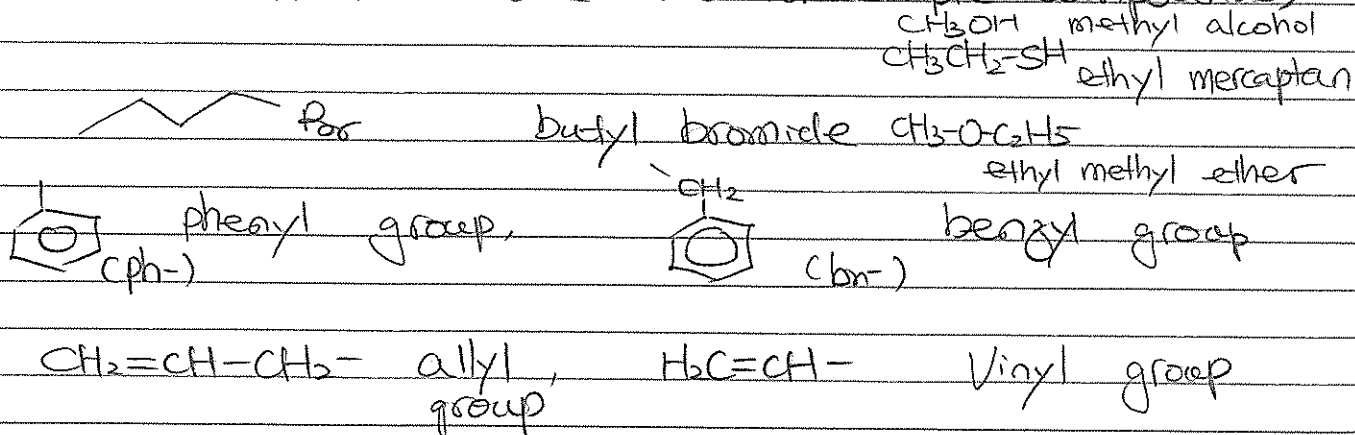 CH3OH methyl alcohol
CH3CH2-SH ethyl mercaptan
Br butyl bromide CH3-O-C2H5
ethyl methyl ether
CH2
phenyl group, benzyl group
(ph-) (bn-)
CH2=CH-CH2- allyl group, H2C=CH- Vinyl group